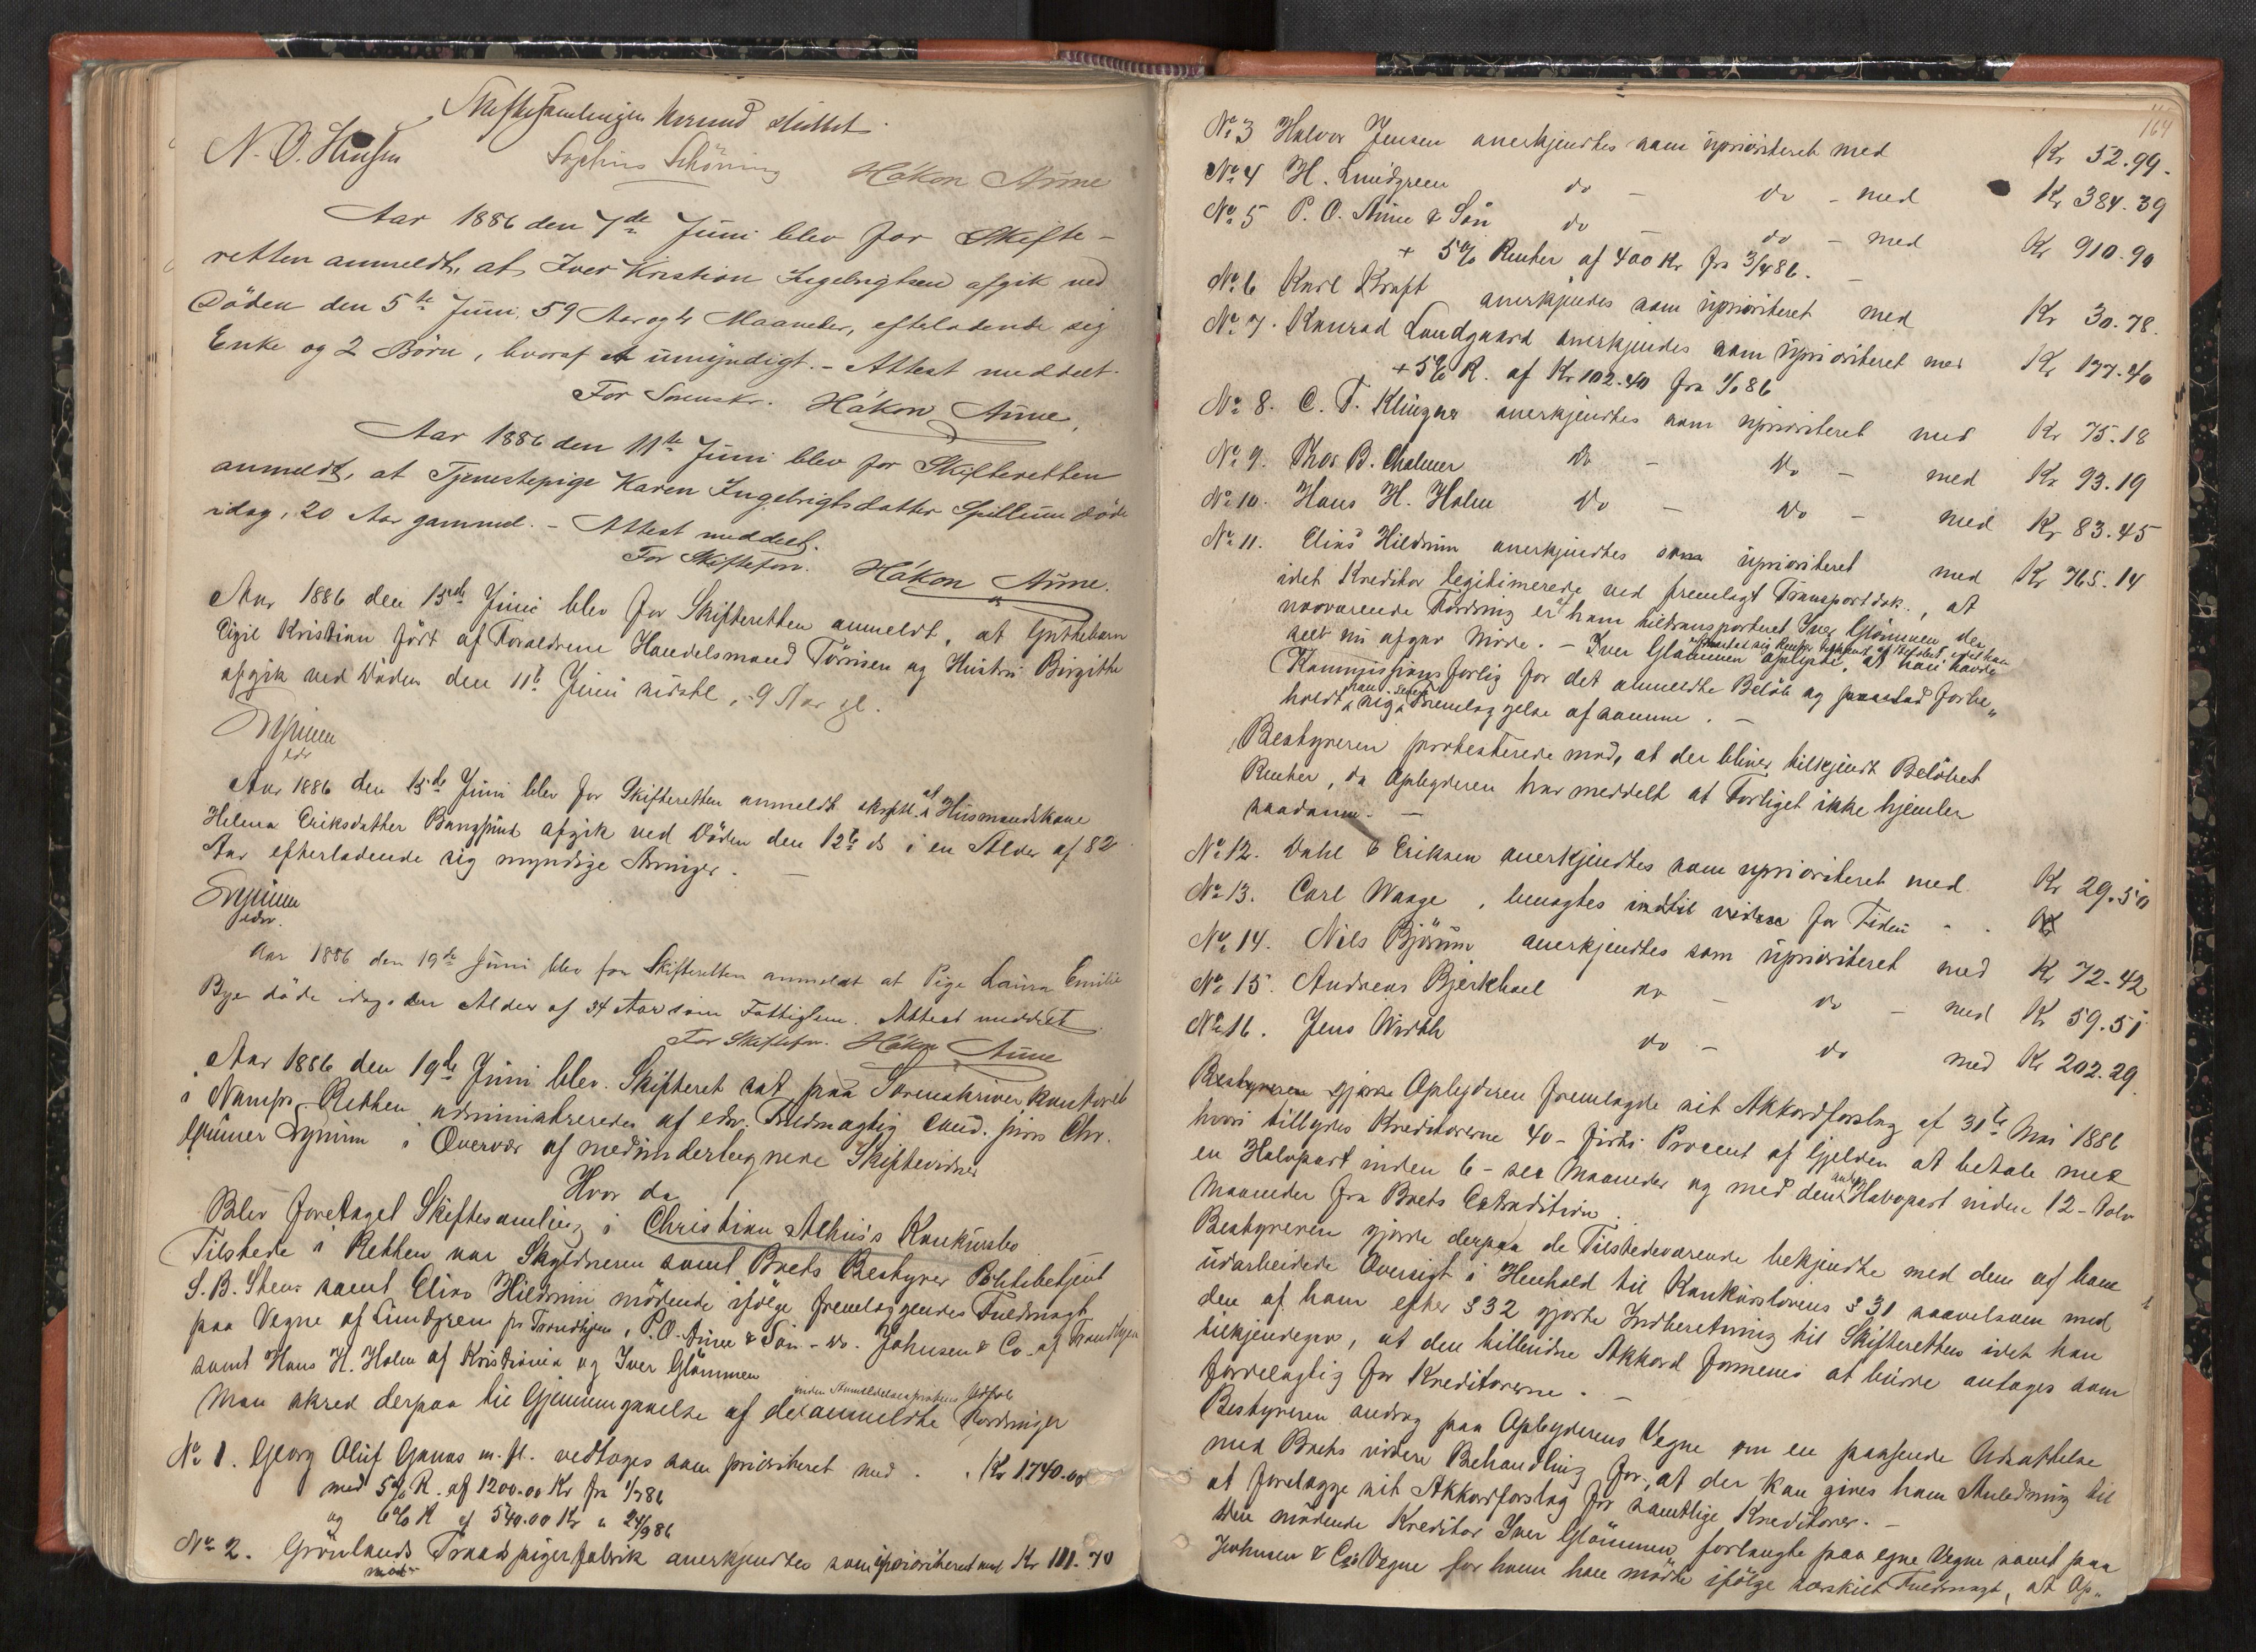 Skiftesamlingen hermed sluttet.
N. O. Hansen Sophus Schöning Håkon Aune
Aar 1886 den 7de Juni blev for Skifte-
retten anmeldt, at Iver Kristian Ingebrigtsen afgik ved
Döden den 5te Juni, 59 Aar og 4 Maaneder, efterladende sig
Enke og 2 Börn, hvoraf et umyndigt. - Attest meddelt.
For Sorenskr. Håkon Aune.
Aar 1886 den 11te Juni blev for Skifteretten
anmeldt, at Tjenestepige Karen Ingebrigtsdatter Spillum döde
idag, 20 Aar gammel. - Attest meddelt.
For Skifteforv. Håkon Aune.
Aar 1886 den 15de Juni blev for Skifteretten anmeldt, at Gutebarn
Eigil Kristian födt af Forældrene Handelsmand Törrisen og Hustru Birgitte
afgik ved Döden den 11te Juni sidstl., 9 Aar gl.
edv
Aar 1886 den 15de Juni blev for Skifteretten anmeldt skriftl. at Husmandskone
Helena Eriksdatter Bangsund afgik ved Döden den 12te ds i en Alder af 82
Aar efterladende sig myndige Arvinger. -
edv.
Aar 1886 den 19de Juni blev for Skifteretten anmeldt at Pige Laura Emilie
Bye döde idag i en Alder af 34 Aar som Fattiglem. Attest meddelt.
For Skifteforv. Håkon Aune
Aar 1886 den 19de Juni blev Skifteret sat paa Sorenskriverkontoret
i Namsos. Retten administreredes af edv. Fuldmægtig cand. juris Chr.
i Overvær af medundertegnede Skiftevidner
Hvor da
Blev foretaget Skiftesamling i Christian Athus's Konkursbo
Tilstede i Retten var Skyldneren samt Boets Bestyrer Politibetjent
S. B. Steen samt Elias Hildrum mödende ifölge fremlæggendes Fuldmagt
paa Vegne af Lundgren pr Trondhjem, P. O. Aune & Sön - do. Johnsen & Co. af Trondhjem
samt Hans H. Holm af Kristiania og Iver Glömmen
inden Anmeldelsesfristens Udløb
Man skred derpaa til Gjennemgaaelse af de anmeldte Fordringer
No 1. Georg Oluf Ganas m. fl. vedtoges som prioriteret med . . Kr 1,740.00
med 5% R. af 1200.00 Kr fra 1/7 86
og 6% R af 540.00 Kr " 24/3 86
No 2. Grönlands Traadspigerfabrik anerkjendtes som uprioriteret med Kr 111.70
164
No 3 Halvor Jensen anerkjendtes som uprioriteret med Kr 52.99.
No 4 H. Lundgreen do - do - med Kr 384.39
No 5 P. O. Aune & Sön do - do - med Kr 910.90
+ 5% Renter af 400 Kr fra 3/4 86. -
No 6 Karl Kraft anerkjendes som uprioriteret med Kr 30.78.
No 7. Konrad Lundgaard anerkjendes som uprioriteret med Kr 177.40
+ 5% R. af Kr 102.40 fra 1/1 86
No 8. C. F. Klinger anerkjendtes som uprioriteret med Kr 75.18
No 9. Thos B. Chalmer do - do - med Kr 93.19
No 10. Hans H. Holm do - do - med Kr 83.45
No 11. Elias Hildrum anerkjendtes som uprioriteret med Kr 765.14
idet Kreditor legitimerede ved fremlagt Transportdok., at
nærværende Fordring er ham tiltransporteret Iver Glömmen, der
selv nu afgav Möde. - Iver Glömmen oplyste, at han havde
Kommissionsforlig for det anmeldte Belöb og forbe„
holdt sig Fremlæggelse af samme. -
Bestyreren protesterede mod, at der bliver tilkjendt Belöbet
Renter, da Opbyderen har meddelt at Forliget ikke hjemler
saadanne. -
No 12. Dahl & Eriksen anerkjendtes som uprioriteret med. Kr 29.50
No 13. Carl Waage, benægtes indtil videre for Tiden " .
No 14. Nils Björum anerkjendtes som uprioriteret med Kr 72.42
No 15. Andreas Bjerkhoel do - do - med Kr 59.51
No 16. Jens Wirth do - do med Kr 202.29.
Opbyderen fremlagde sit Akkordforslag af 31te Mai 1886
hvori tilbydes Kreditorerne 40 - firti Procent af Gjelden at betale med
en Halvpart inden 6 - sex Maaneder og med den anden Halvpart inden 12 - tolv
Maaneder fra Boets Extradition.
Bestyreren gjorde derpaa de Tilstedeværende bekjendte med den af ham
udarbeidede Oversigt i Henhold til Konkurslovens § 31 saavelsom med
den af ham efter § 32 gjorte Indberetning til Skifteretten idet han
tilkjendegav, at den tilbudne Akkord formenes at burde antages som
fordelagtig for Kreditorerne. -
Bestyreren androg paa Opbyderens Vegne om en passende Udsættelse
med Boets videre Behandling for, at der kan gives ham Anledning til
at forelægge sit Akkordforslag for samtlige Kreditorer. -
Den mödende Kreditor Iver Glömmen forlangte paa egne Vegne samt paa
Johnsen & Co's Vegne for hvem han mödte ifölge særskilt Fuldmagt, at Op„